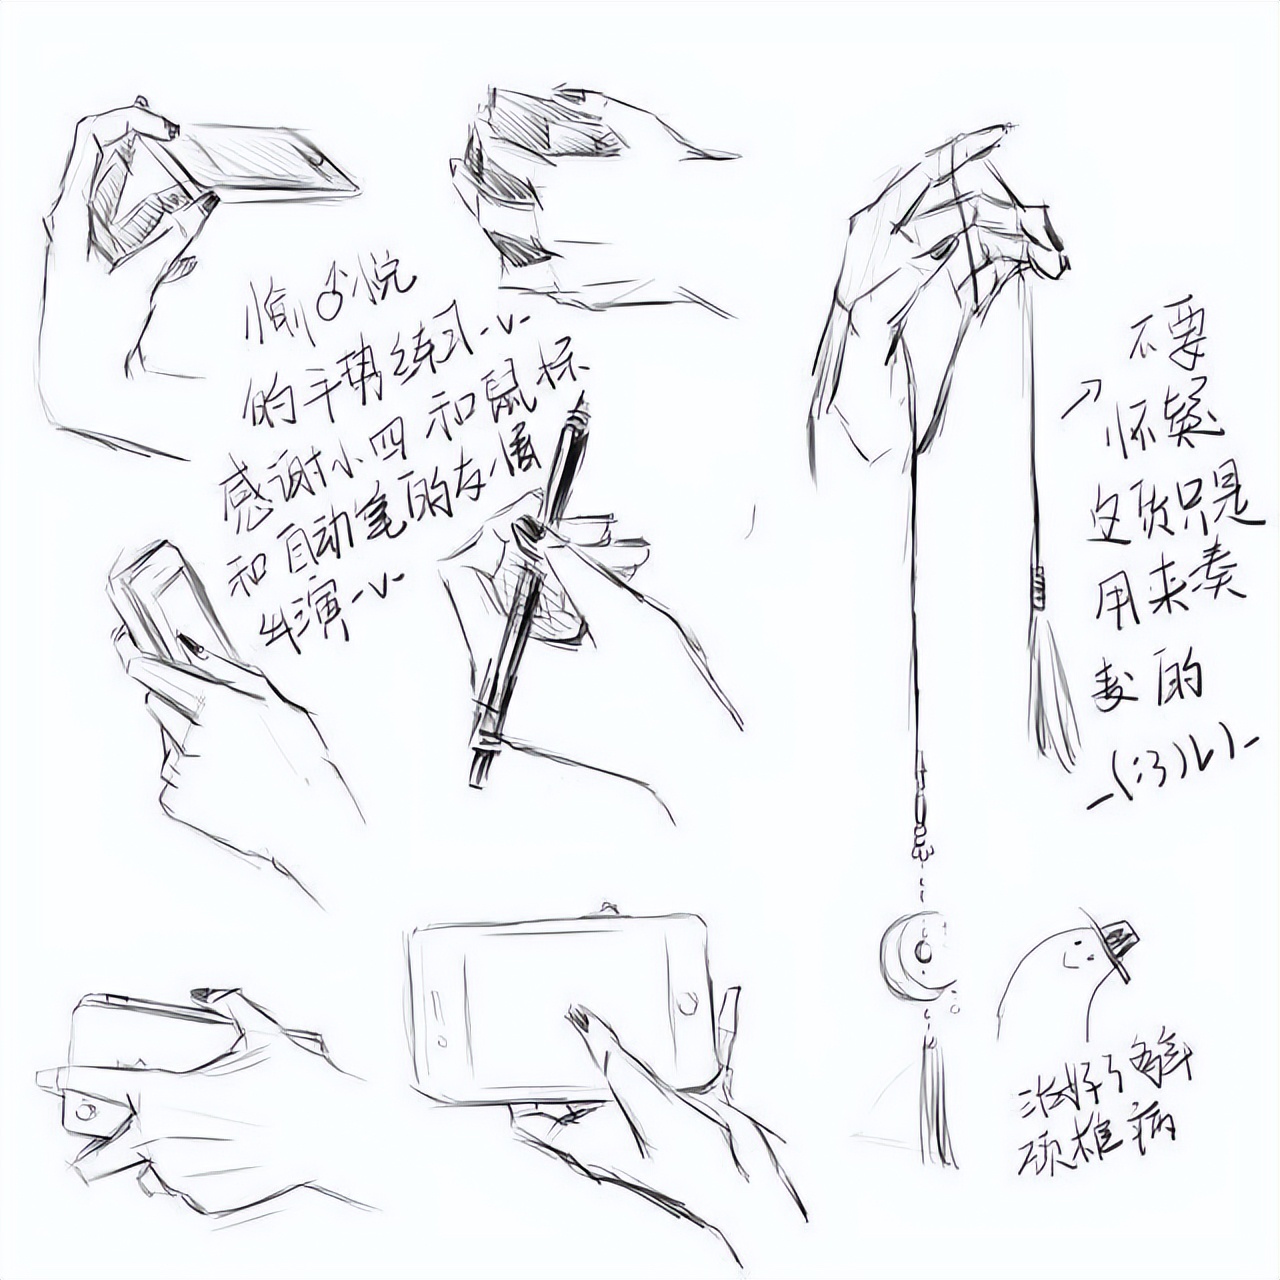 愉♂悦
的手势练习-v-
感谢小四和鼠标
和自动笔的友情
出演-v-
不要
怀疑
这货只是
用来凑
数的
_(:3)∠)_
治好了
颈椎病